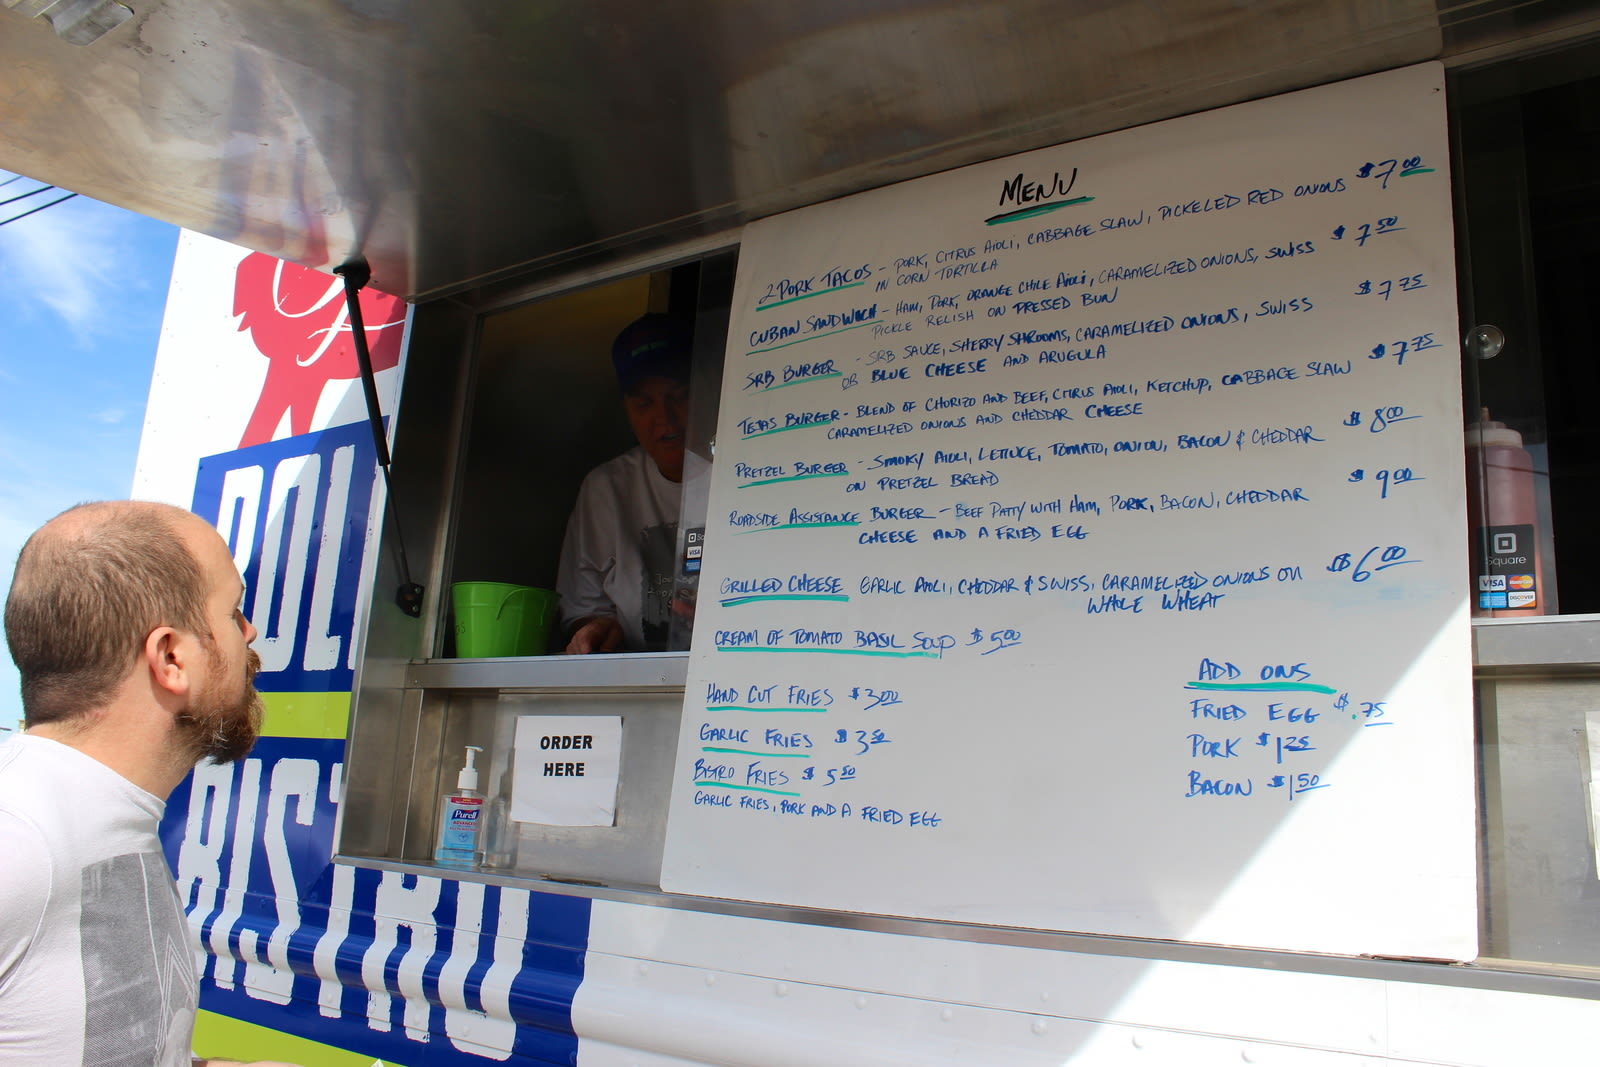 MENU
2 PORK TACOS - PORK, CITRUS AIOLI, CABBAGE SLAW, PICKELED RED ONIONS $7.00
IN CORN TORTILLA
CUBAN SANDWICH - HAM, PORK, ORANGE CHILE AIOLI, CARAMELIZED ONIONS, SWISS $7.50
PICKLE RELISH ON PRESSED BUN
SRB BURGER - SRB SAUCE, SHERRY SHROOMS, CARAMELIZED ONIONS, SWISS $7.75
OR BLUE CHEESE AND ARUGULA
TEJAS BURGER - BLEND OF CHORIZO AND BEEF, CITRUS AIOLI, KETCHUP, CABBAGE SLAW $7.75
CARAMELIZED ONIONS AND CHEDDAR CHEESE
PRETZEL BURGER - SMOKY AIOLI, LETTUCE, TOMATO, ONION, BACON & CHEDDAR $8.00
ON PRETZEL BREAD
ROADSIDE ASSISTANCE BURGER - BEEF PATTY WITH HAM, PORK, BACON, CHEDDAR $9.00
CHEESE AND A FRIED EGG
GRILLED CHEESE GARLIC AIOLI, CHEDDAR & SWISS, CARAMELIZED ONIONS ON $6.00
WHOLE WHEAT
CREAM OF TOMATO BASIL SOUP $5.00
HAND CUT FRIES $3.00
GARLIC FRIES $3.50
BISTRO FRIES $5.50
GARLIC FRIES, PORK AND A FRIED EGG
ADD ONS
FRIED EGG $.75
PORK $1.25
BACON $1.50
ORDER
HERE
Purell
ROLL
BISTRO
Square
VISA MasterCard
DISCOVER
VISA